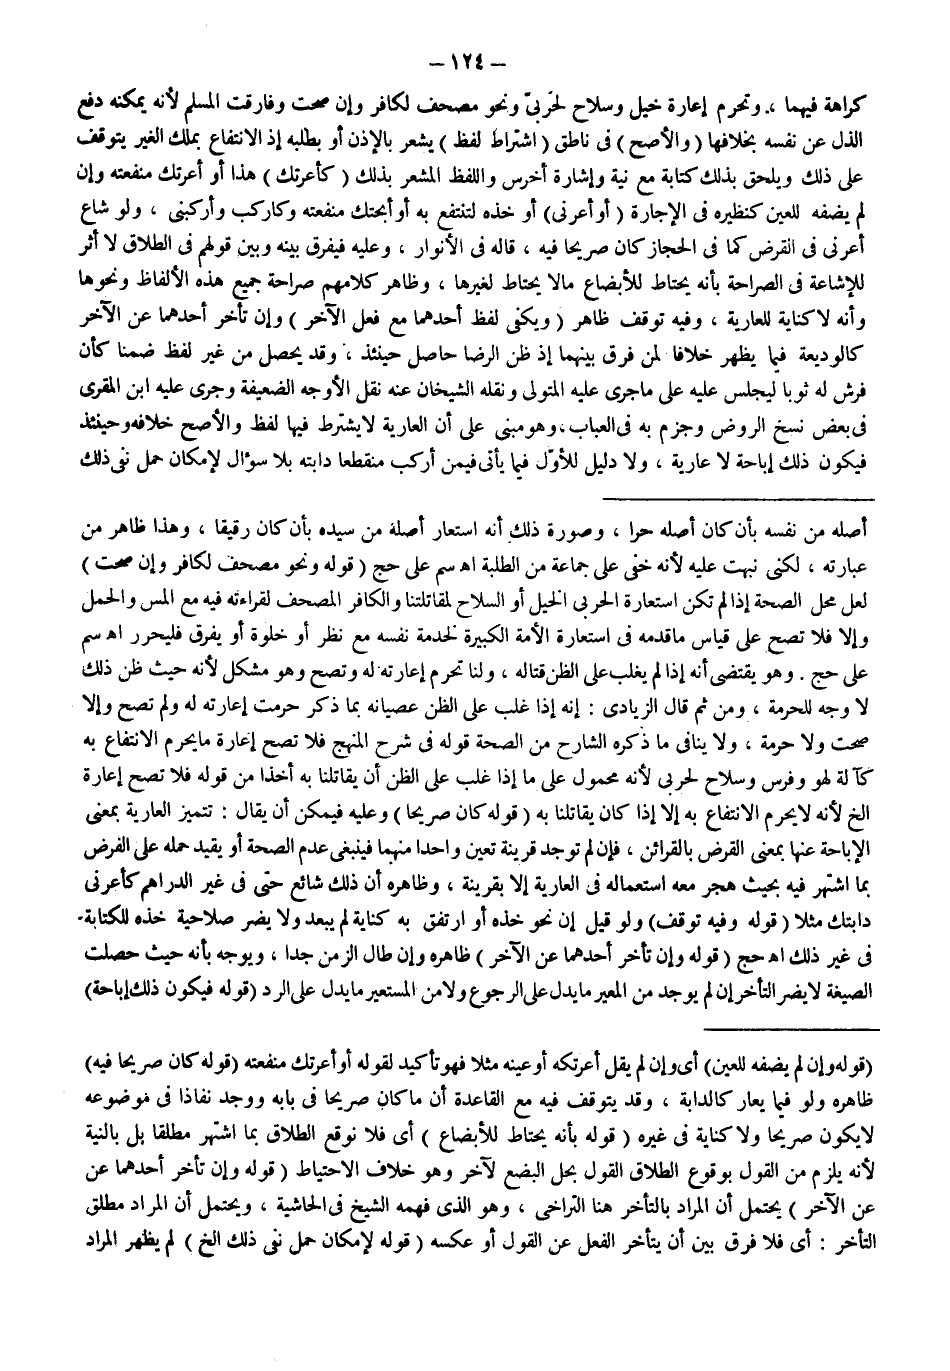 – ١٢٤ –
كراهة فيهما ، وتحرم إعارة خيل وسلاح لحربىّ ونحو مصحف لكافر وإن صحت وفارقت المسلم لأنه يمكنه دفع
الذل عن نفسه بخلافها ( والأصح ) فى ناطق ( اشتراط لفظ ) يشعر بالإذن أو بطلبه إذ الانتفاع بملك الغير يتوقف
على ذلك ويلحق بذلك كتابة مع نية وإشارة أخرس واللفظ المشعر بذلك ( كأعرتك ) هذا أو أعرتك منفعته وإن
لم يضفه للعين كنظيره فى الإجارة ( أو أعرنى ) أو خذه لتنتفع به أو أبحتك منفعته وكاركب وأركبنى ، ولو شاع
أعرنى فى القرض كما فى الحجاز كان صريحا فيه ، قاله فى الأنوار ، وعليه فيفرق بينه وبين قولهم فى الطلاق لا أثر
للإشاعة فى الصراحة بأنه يحتاط للأبضاع مالا يحتاط لغيرها ، وظاهر كلامهم صراحة جميع هذه الألفاظ ونحوها
وأنه لا كناية للعارية ، وفيه توقف ظاهر ( ويكفى لفظ أحدهما مع فعل الآخر ) وإن تأخر أحدهما عن الآخر
كالوديعة فيما يظهر خلافا لمن فرق بينهما إذ ظن الرضا حاصل حينئذ ، وقد يحصل من غير لفظ ضمنا كأن
فرش له ثوبا ليجلس عليه على ماجرى عليه المتولى ونقله الشيخان عنه نقل الأوجه الضعيفة وجرى عليه ابن المقرى
فى بعض نسخ الروض وجزم به فى العباب ، وهو مبنى على أن العارية لا يشترط فيها لفظ والأصح خلافه وحينئذ
فيكون ذلك إباحة لا عارية ، ولا دليل للأوّل فيما يأتى فيمن أركب منقطعا دابته بلا سؤال لإمكان حمل نفى ذلك
أصله من نفسه بأن كان أصله حرا ، وصورة ذلك أنه استعار أصله من سيده بأن كان رقيقا ، وهذا ظاهر من
عبارته ، لكنى نبهت عليه لأنه خفى على جماعة من الطلبة اه سم على حج ( قوله ونحو مصحف لكافر وإن صحت )
لعل محل الصحة إذا لم تكن استعارة الحربى الخيل أو السلاح لمقاتلتنا والكافر المصحف لقراءته فيه مع المس والحمل
وإلا فلا تصح على قياس ماقدمه فى استعارة الأمة الكبيرة لخدمة نفسه مع نظر أو خلوة أو يفرق فليحرر اه سم
على حج . وهو يقتضى أنه إذا لم يغلب على الظن قتاله ، ولنا تحرم إعارته له وتصح وهو مشكل لأنه حيث ظن ذلك
لا وجه للحرمة ، ومن ثم قال الزيادى : إنه إذا غلب على الظن عصيانه بما ذكر حرمت إعارته له ولم تصح وإلا
صحت ولا حرمة ، ولا ينافى ما ذكره الشارح من الصحة قوله فى شرح المنهج فلا تصح إعارة مايحرم الانتفاع به
كآلة لهو وفرس وسلاح لحربى لأنه محمول على ما إذا غلب على الظن أن يقاتلنا به أخذا من قوله فلا تصح إعارة
الخ لأنه لايحرم الانتفاع به إلا إذا كان يقاتلنا به ( قوله كان صريحا ) وعليه فيمكن أن يقال : تتميز العارية بمعنى
الإباحة عنها بمعنى القرض بالقرائن ، فإن لم توجد قرينة تعين واحدا منهما فينبغى عدم الصحة أو يقيد حمله على الفرض
بما اشتهر فيه بحيث هجر معه استعماله فى العارية إلا بقرينة ، وظاهره أن ذلك شائع حتى فى غير الدراهم كأعرنى
دابتك مثلا ( قوله وفيه توقف) ولو قيل إن نحو خذه أو ارتفق به كناية لم يبعد ولا يضر صلاحية خذه للكناية
فى غير ذلك اه حج ( قوله وإن تأخر أحدهما عن الآخر ) ظاهره وإن طال الزمن جدا ، ويوجه بأنه حيث حصلت
الصيغة لا يضر التأخر إن لم يوجد من المعير مايدل على الرجوع ولا من المستعير مايدل على الرد (قوله فيكون ذلك إباحة)
(قوله وإن لم يضفه للعين) أى وإن لم يقل أعرتكه أو عينه مثلا فهو تأكيد لقوله أو أعرتك منفعته (قوله كان صريحا فيه)
ظاهره ولو فيما يعار كالدابة ، وقد يتوقف فيه مع القاعدة أن ماكان صريحا فى بابه ووجد نفاذا فى موضوعه
لايكون صريحا ولا كناية فى غيره ( قوله بأنه يحتاط للأبضاع ) أى فلا نوقع الطلاق بما اشتهر مطلقا بل بالنية
لأنه يلزم من القول بوقوع الطلاق القول بحل البضع لآخر وهو خلاف الاحتياط ( قوله وإن تأخر أحدهما عن
عن الآخر ) يحتمل أن المراد بالتأخر هنا التراخى ، وهو الذى فهمه الشيخ فى الحاشية ، ويحتمل أن المراد مطلق
التأخر : أى فلا فرق بين أن يتأخر الفعل عن القول أو عكسه ( قوله لإمكان حمل نفى ذلك الخ ) لم يظهر المراد